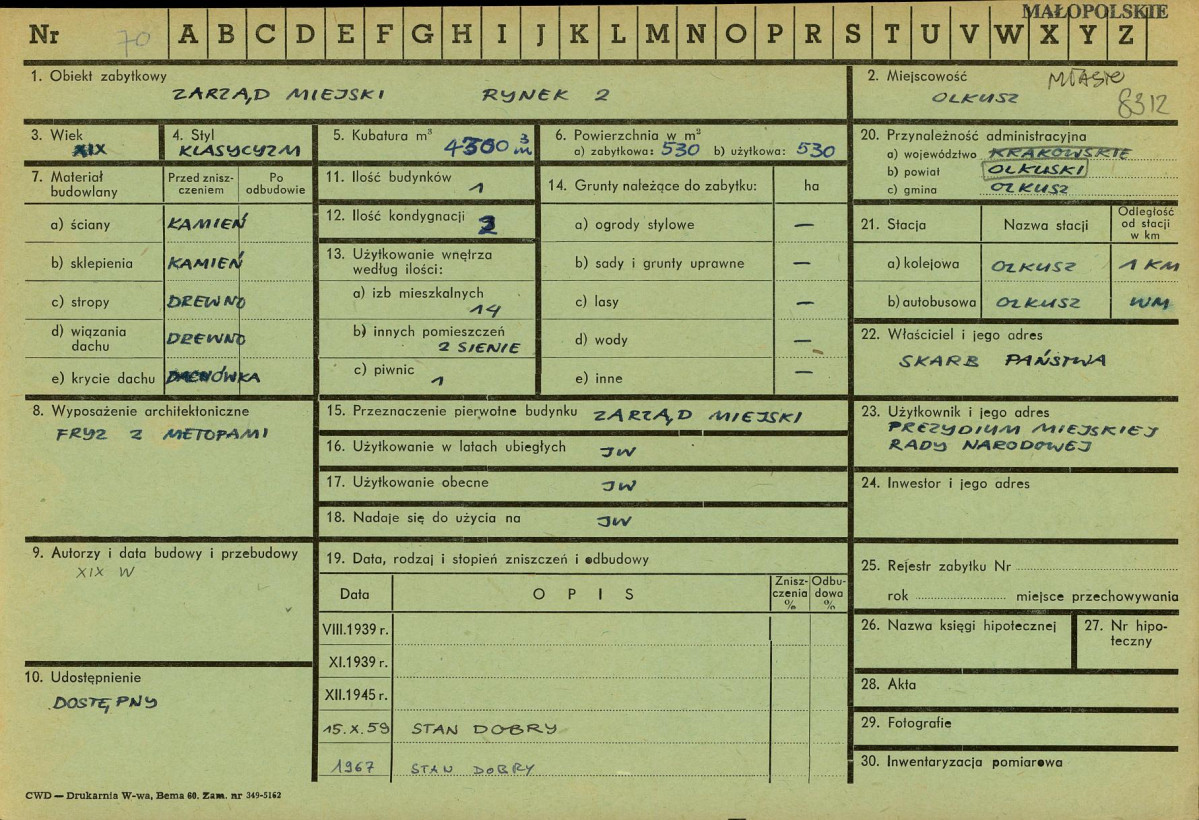 MAŁOPOLSKIE
Nr 70 A B C D E F G H I J K L M N O P R S T U V W X Y Z
1. Obiekt zabytkowy
ZARZĄD MIEJSKI RYNEK 2
2. Miejscowość MIASTO
OLKUSZ 8312
3. Wiek
XIX
4. Styl
KLASYCYZM
5. Kubatura m³
4300 m³
6. Powierzchnia w m²
a) zabytkowa: 530 b) użytkowa: 530
7. Materiał budowlany
Przed znisz-czeniem
Po odbudowie
a) ściany KAMIEŃ
b) sklepienia KAMIEŃ
c) stropy DREWNO
d) wiązania dachu DREWNO
e) krycie dachu DACHÓWKA
8. Wyposażenie architektoniczne
FRYZ Z METOPAMI
9. Autorzy i data budowy i przebudowy
XIX W
10. Udostępnienie
DOSTĘPNY
11. Ilość budynków
1
12. Ilość kondygnacji
2
13. Użytkowanie wnętrza
według ilości:
a) izb mieszkalnych
14
b) innych pomieszczeń
2 SIENIE
c) piwnic
1
14. Grunty należące do zabytku: ha
a) ogrody stylowe —
b) sady i grunty uprawne —
c) lasy —
d) wody —
e) inne —
15. Przeznaczenie pierwotne budynku ZARZĄD MIEJSKI
16. Użytkowanie w latach ubiegłych JW
17. Użytkowanie obecne JW
18. Nadaje się do użycia na JW
19. Data, rodzaj i stopień zniszczeń i odbudowy
Data OPIS Znisz-czenia % Odbu-dowa %
VIII.1939 r.
XI.1939 r.
XII.1945 r.
15.X.59 STAN DOBRY
1967 STAN DOBRY
20. Przynależność administracyjna
a) województwo KRAKOWSKIE
b) powiat OLKUSKI
c) gmina OLKUSZ
21. Stacja Nazwa stacji Odległość od stacji w km
a) kolejowa OLKUSZ 1 KM
b) autobusowa OLKUSZ WM
22. Właściciel i jego adres
SKARB PAŃSTWA
23. Użytkownik i jego adres
PREZYDIUM MIEJSKIEJ
RADY NARODOWEJ
24. Inwestor i jego adres
25. Rejestr zabytku Nr
rok miejsce przechowywania
26. Nazwa księgi hipotecznej
27. Nr hipo-teczny
28. Akta
29. Fotografie
30. Inwentaryzacja pomiarowa
CWD — Drukarnia W-wa, Bema 60. Zam. nr 349-5162